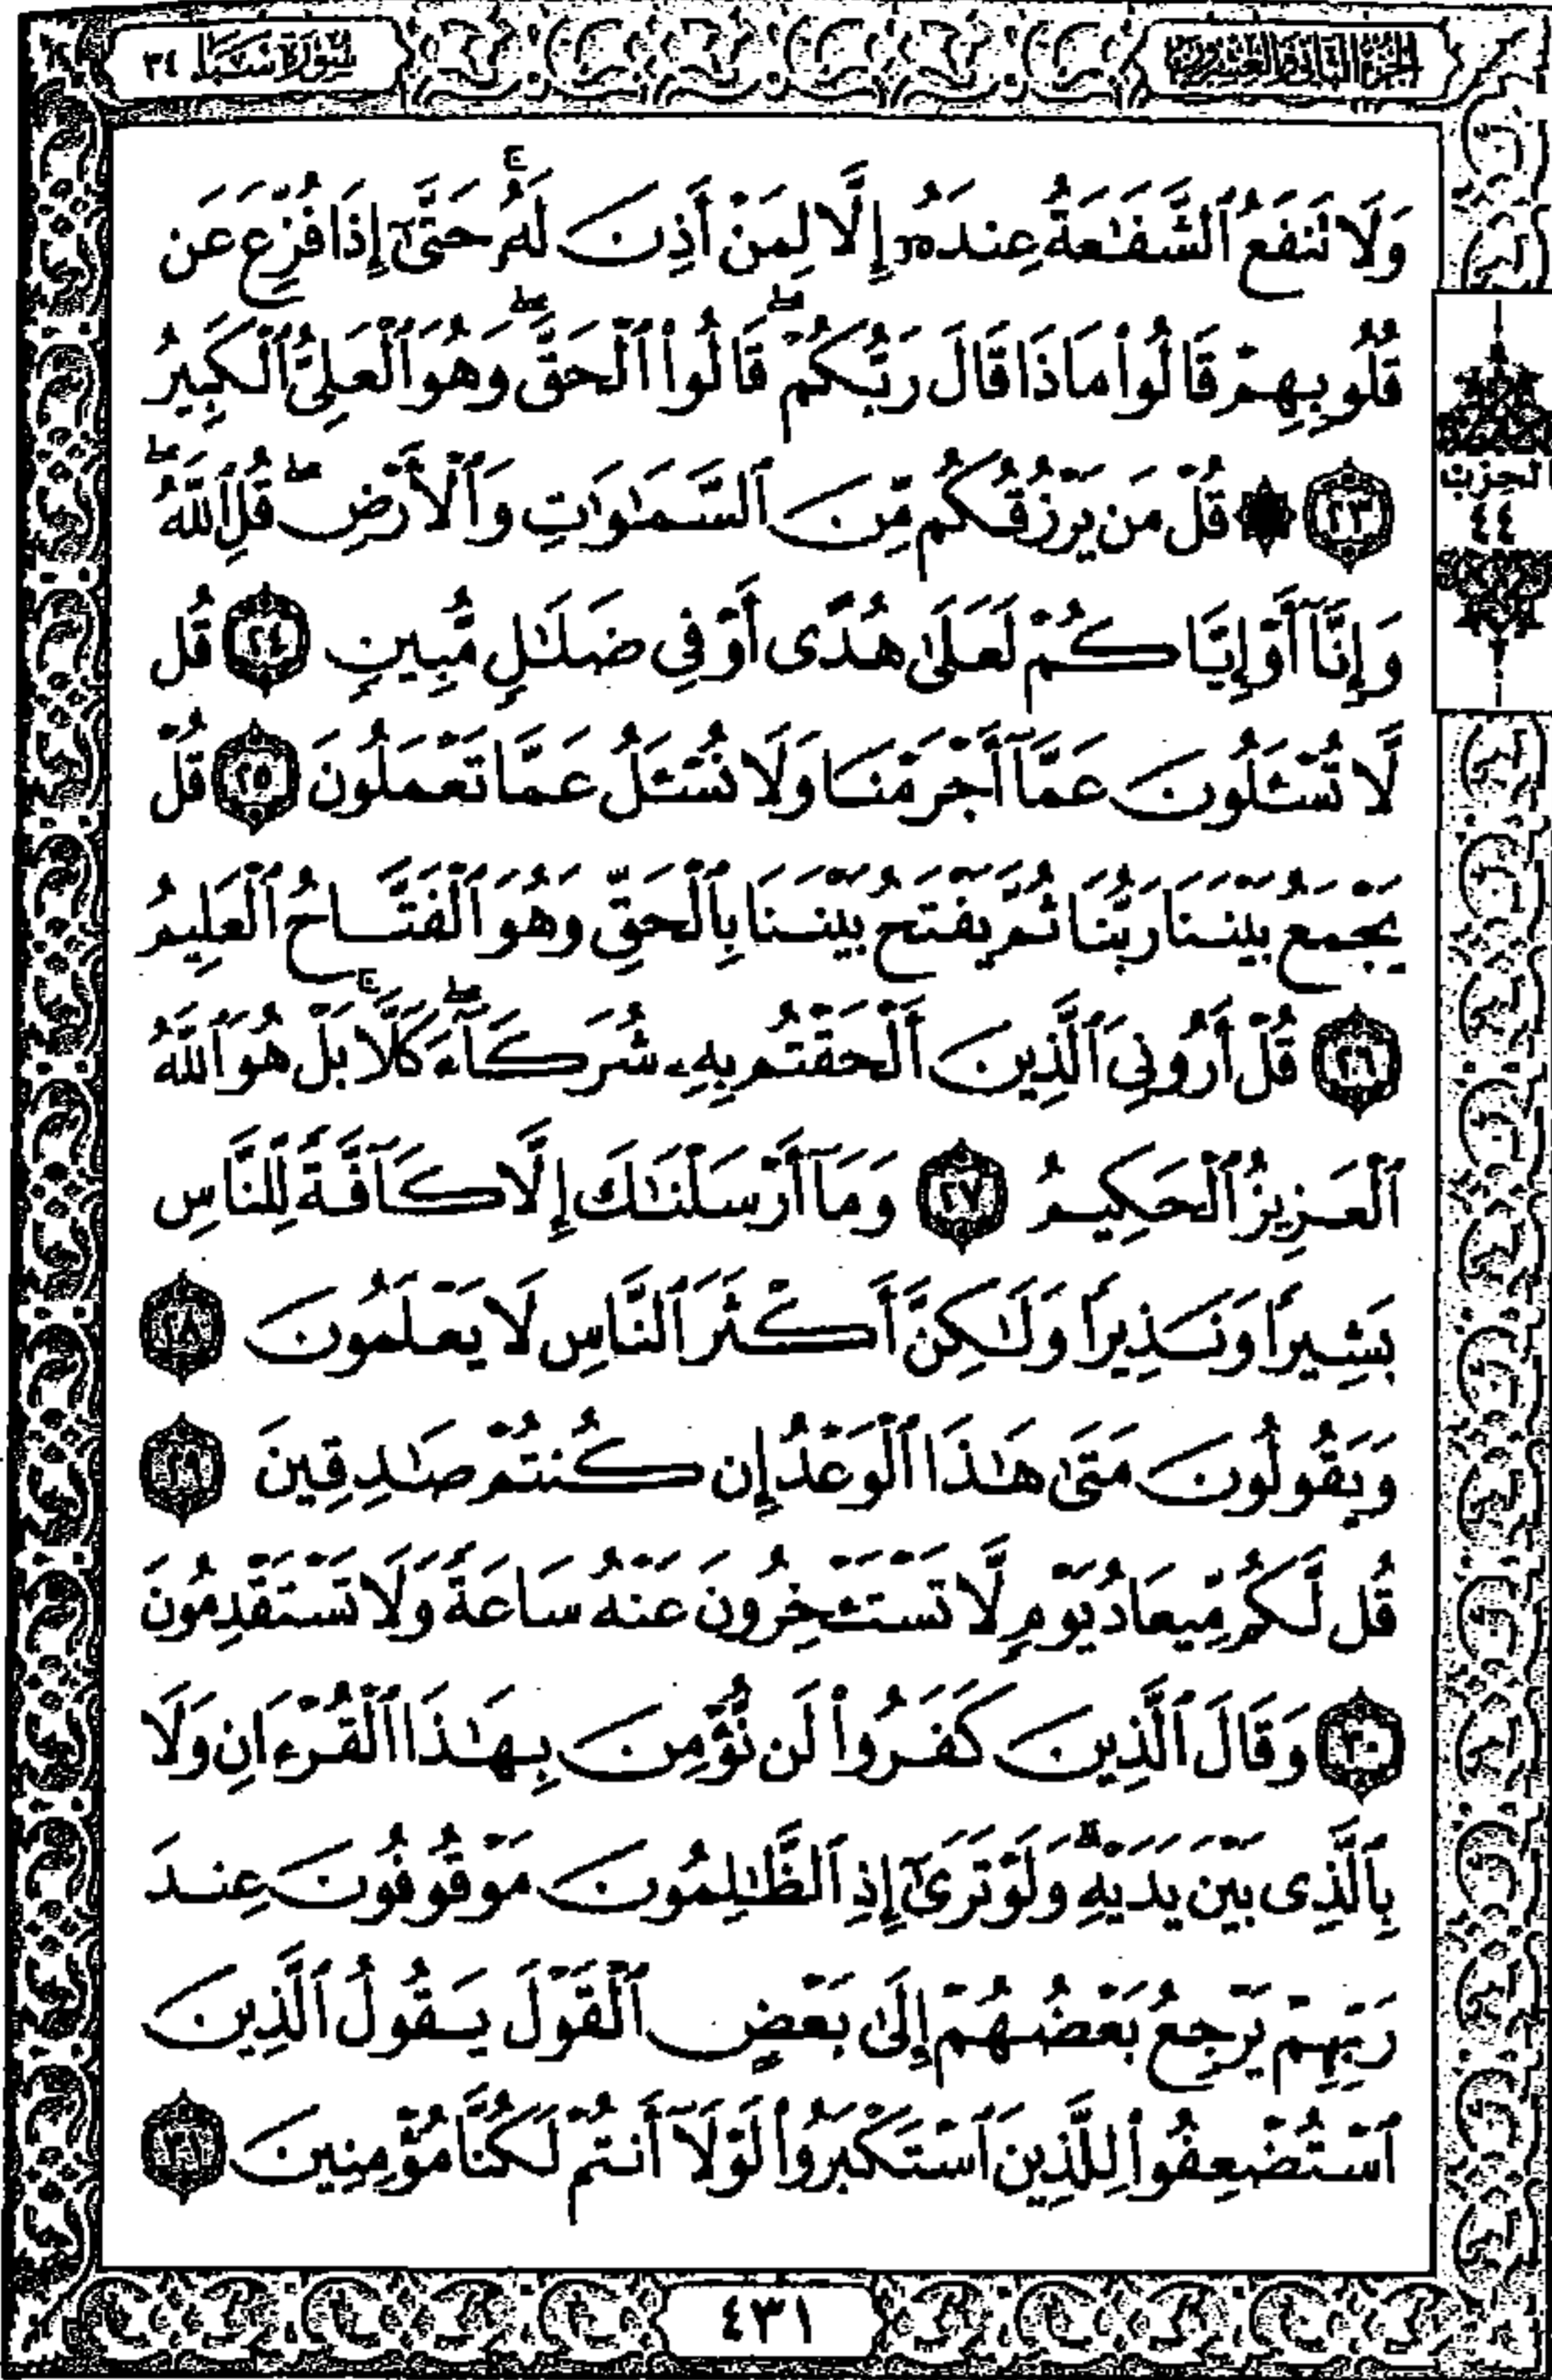 الجزء الثاني والعشرون
سورة سبإ ٣٤
وَلَا تَنفَعُ ٱلشَّفَٰعَةُ عِندَهُۥٓ إِلَّا لِمَنْ أَذِنَ لَهُۥۚ حَتَّىٰٓ إِذَا فُزِّعَ عَن
قُلُوبِهِمْ قَالُوا۟ مَاذَا قَالَ رَبُّكُمْۖ قَالُوا۟ ٱلْحَقَّۖ وَهُوَ ٱلْعَلِىُّ ٱلْكَبِيرُ
٢٣ ۞ قُلْ مَن يَرْزُقُكُم مِّنَ ٱلسَّمَٰوَٰتِ وَٱلْأَرْضِۖ قُلِ ٱللَّهُۖ
وَإِنَّآ أَوْ إِيَّاكُمْ لَعَلَىٰ هُدًى أَوْ فِى ضَلَٰلٍ مُّبِينٍ ٢٤ قُل
لَّا تُسْـَٔلُونَ عَمَّآ أَجْرَمْنَا وَلَا نُسْـَٔلُ عَمَّا تَعْمَلُونَ ٢٥ قُلْ
يَجْمَعُ بَيْنَنَا رَبُّنَا ثُمَّ يَفْتَحُ بَيْنَنَا بِٱلْحَقِّ وَهُوَ ٱلْفَتَّاحُ ٱلْعَلِيمُ
٢٦ قُلْ أَرُونِىَ ٱلَّذِينَ أَلْحَقْتُم بِهِۦ شُرَكَآءَۖ كَلَّاۚ بَلْ هُوَ ٱللَّهُ
ٱلْعَزِيزُ ٱلْحَكِيمُ ٢٧ وَمَآ أَرْسَلْنَٰكَ إِلَّا كَآفَّةً لِّلنَّاسِ
بَشِيرًا وَنَذِيرًا وَلَٰكِنَّ أَكْثَرَ ٱلنَّاسِ لَا يَعْلَمُونَ ٢٨
وَيَقُولُونَ مَتَىٰ هَٰذَا ٱلْوَعْدُ إِن كُنتُمْ صَٰدِقِينَ ٢٩
قُل لَّكُم مِّيعَادُ يَوْمٍ لَّا تَسْتَـْٔخِرُونَ عَنْهُ سَاعَةً وَلَا تَسْتَقْدِمُونَ
٣٠ وَقَالَ ٱلَّذِينَ كَفَرُوا۟ لَن نُّؤْمِنَ بِهَٰذَا ٱلْقُرْءَانِ وَلَا
بِٱلَّذِى بَيْنَ يَدَيْهِۗ وَلَوْ تَرَىٰٓ إِذِ ٱلظَّٰلِمُونَ مَوْقُوفُونَ عِندَ
رَبِّهِمْ يَرْجِعُ بَعْضُهُمْ إِلَىٰ بَعْضٍ ٱلْقَوْلَ يَقُولُ ٱلَّذِينَ
ٱسْتُضْعِفُوا۟ لِلَّذِينَ ٱسْتَكْبَرُوا۟ لَوْلَآ أَنتُمْ لَكُنَّا مُؤْمِنِينَ ٣١
الحزب
٤٤
٤٣١